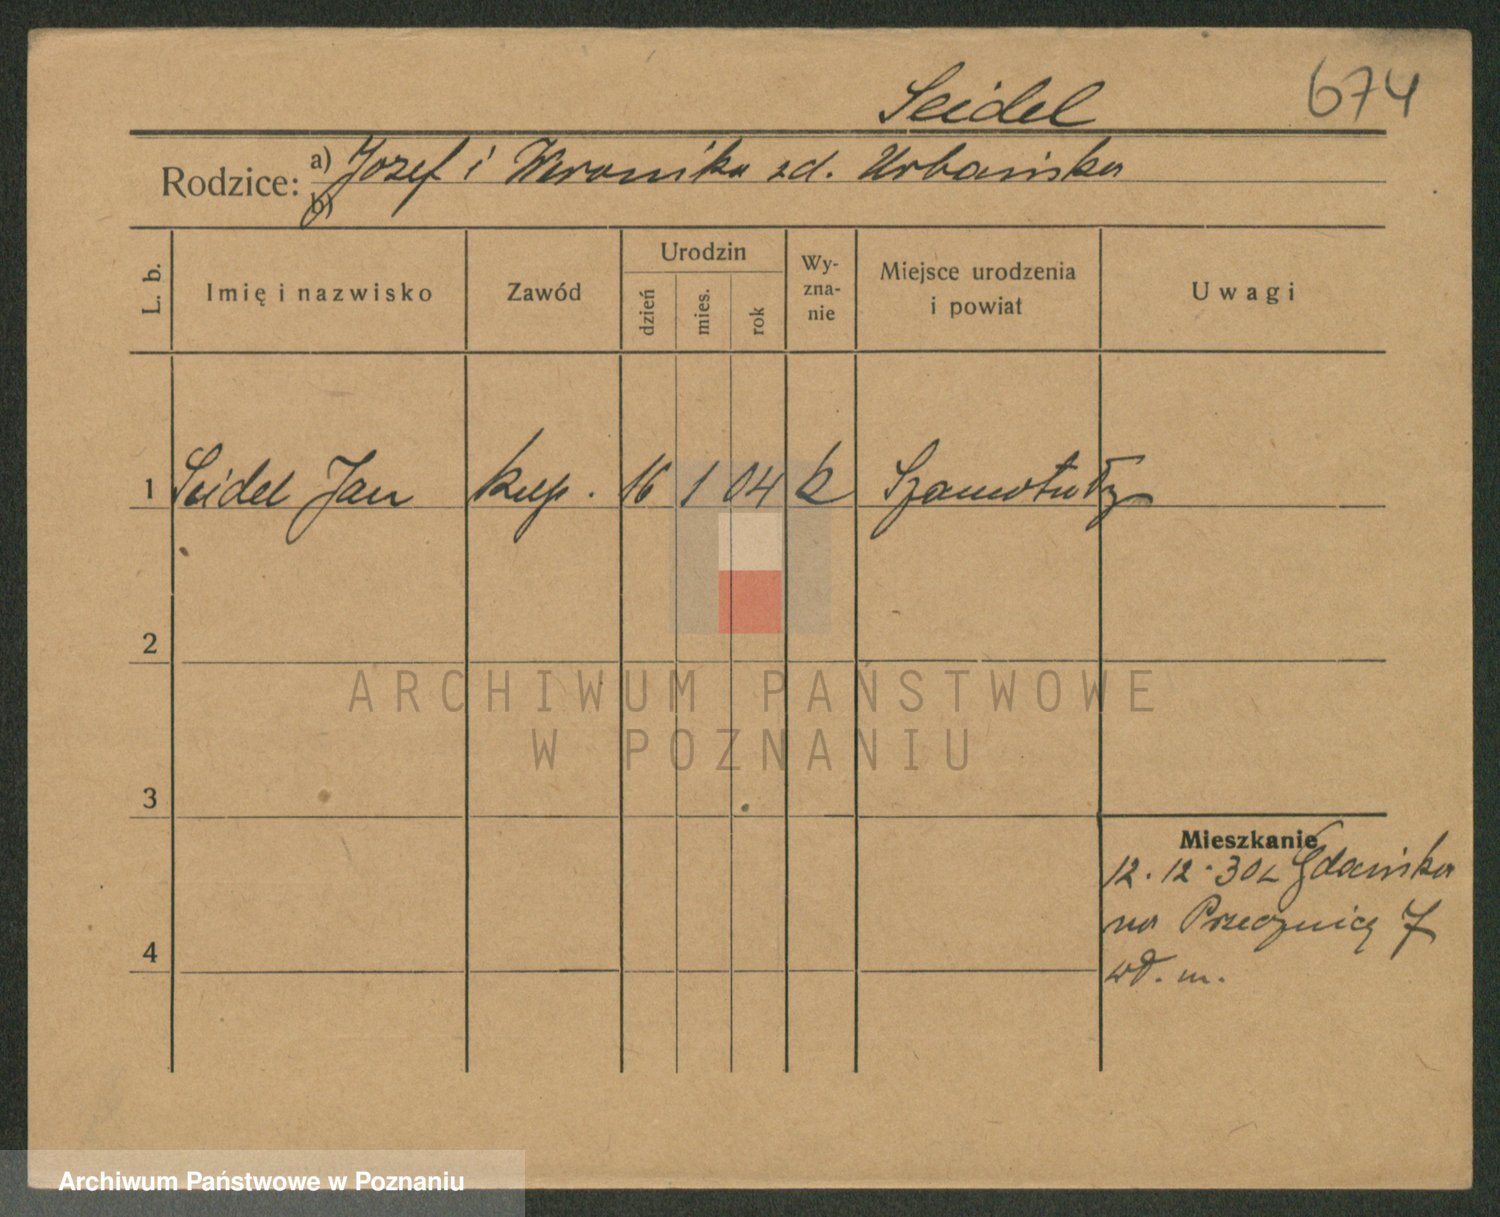 Seidel
674
Rodzice: a) Jozef i Weronika zd. Urbańska
b)
L. b.
Imię i nazwisko
Zawód
Urodzin
dzień
mies.
rok
Wy-
zna-
nie
Miejsce urodzenia
i powiat
Uwagi
1 Seidel Jan kup. 16 1 04 k Szamotuły
2
3
4
Mieszkanie
12.12.30 z Gdańska
na Przecznicę 7
wł. m.
ARCHIWUM PAŃSTWOWE
W POZNANIU
Archiwum Państwowe w Poznaniu